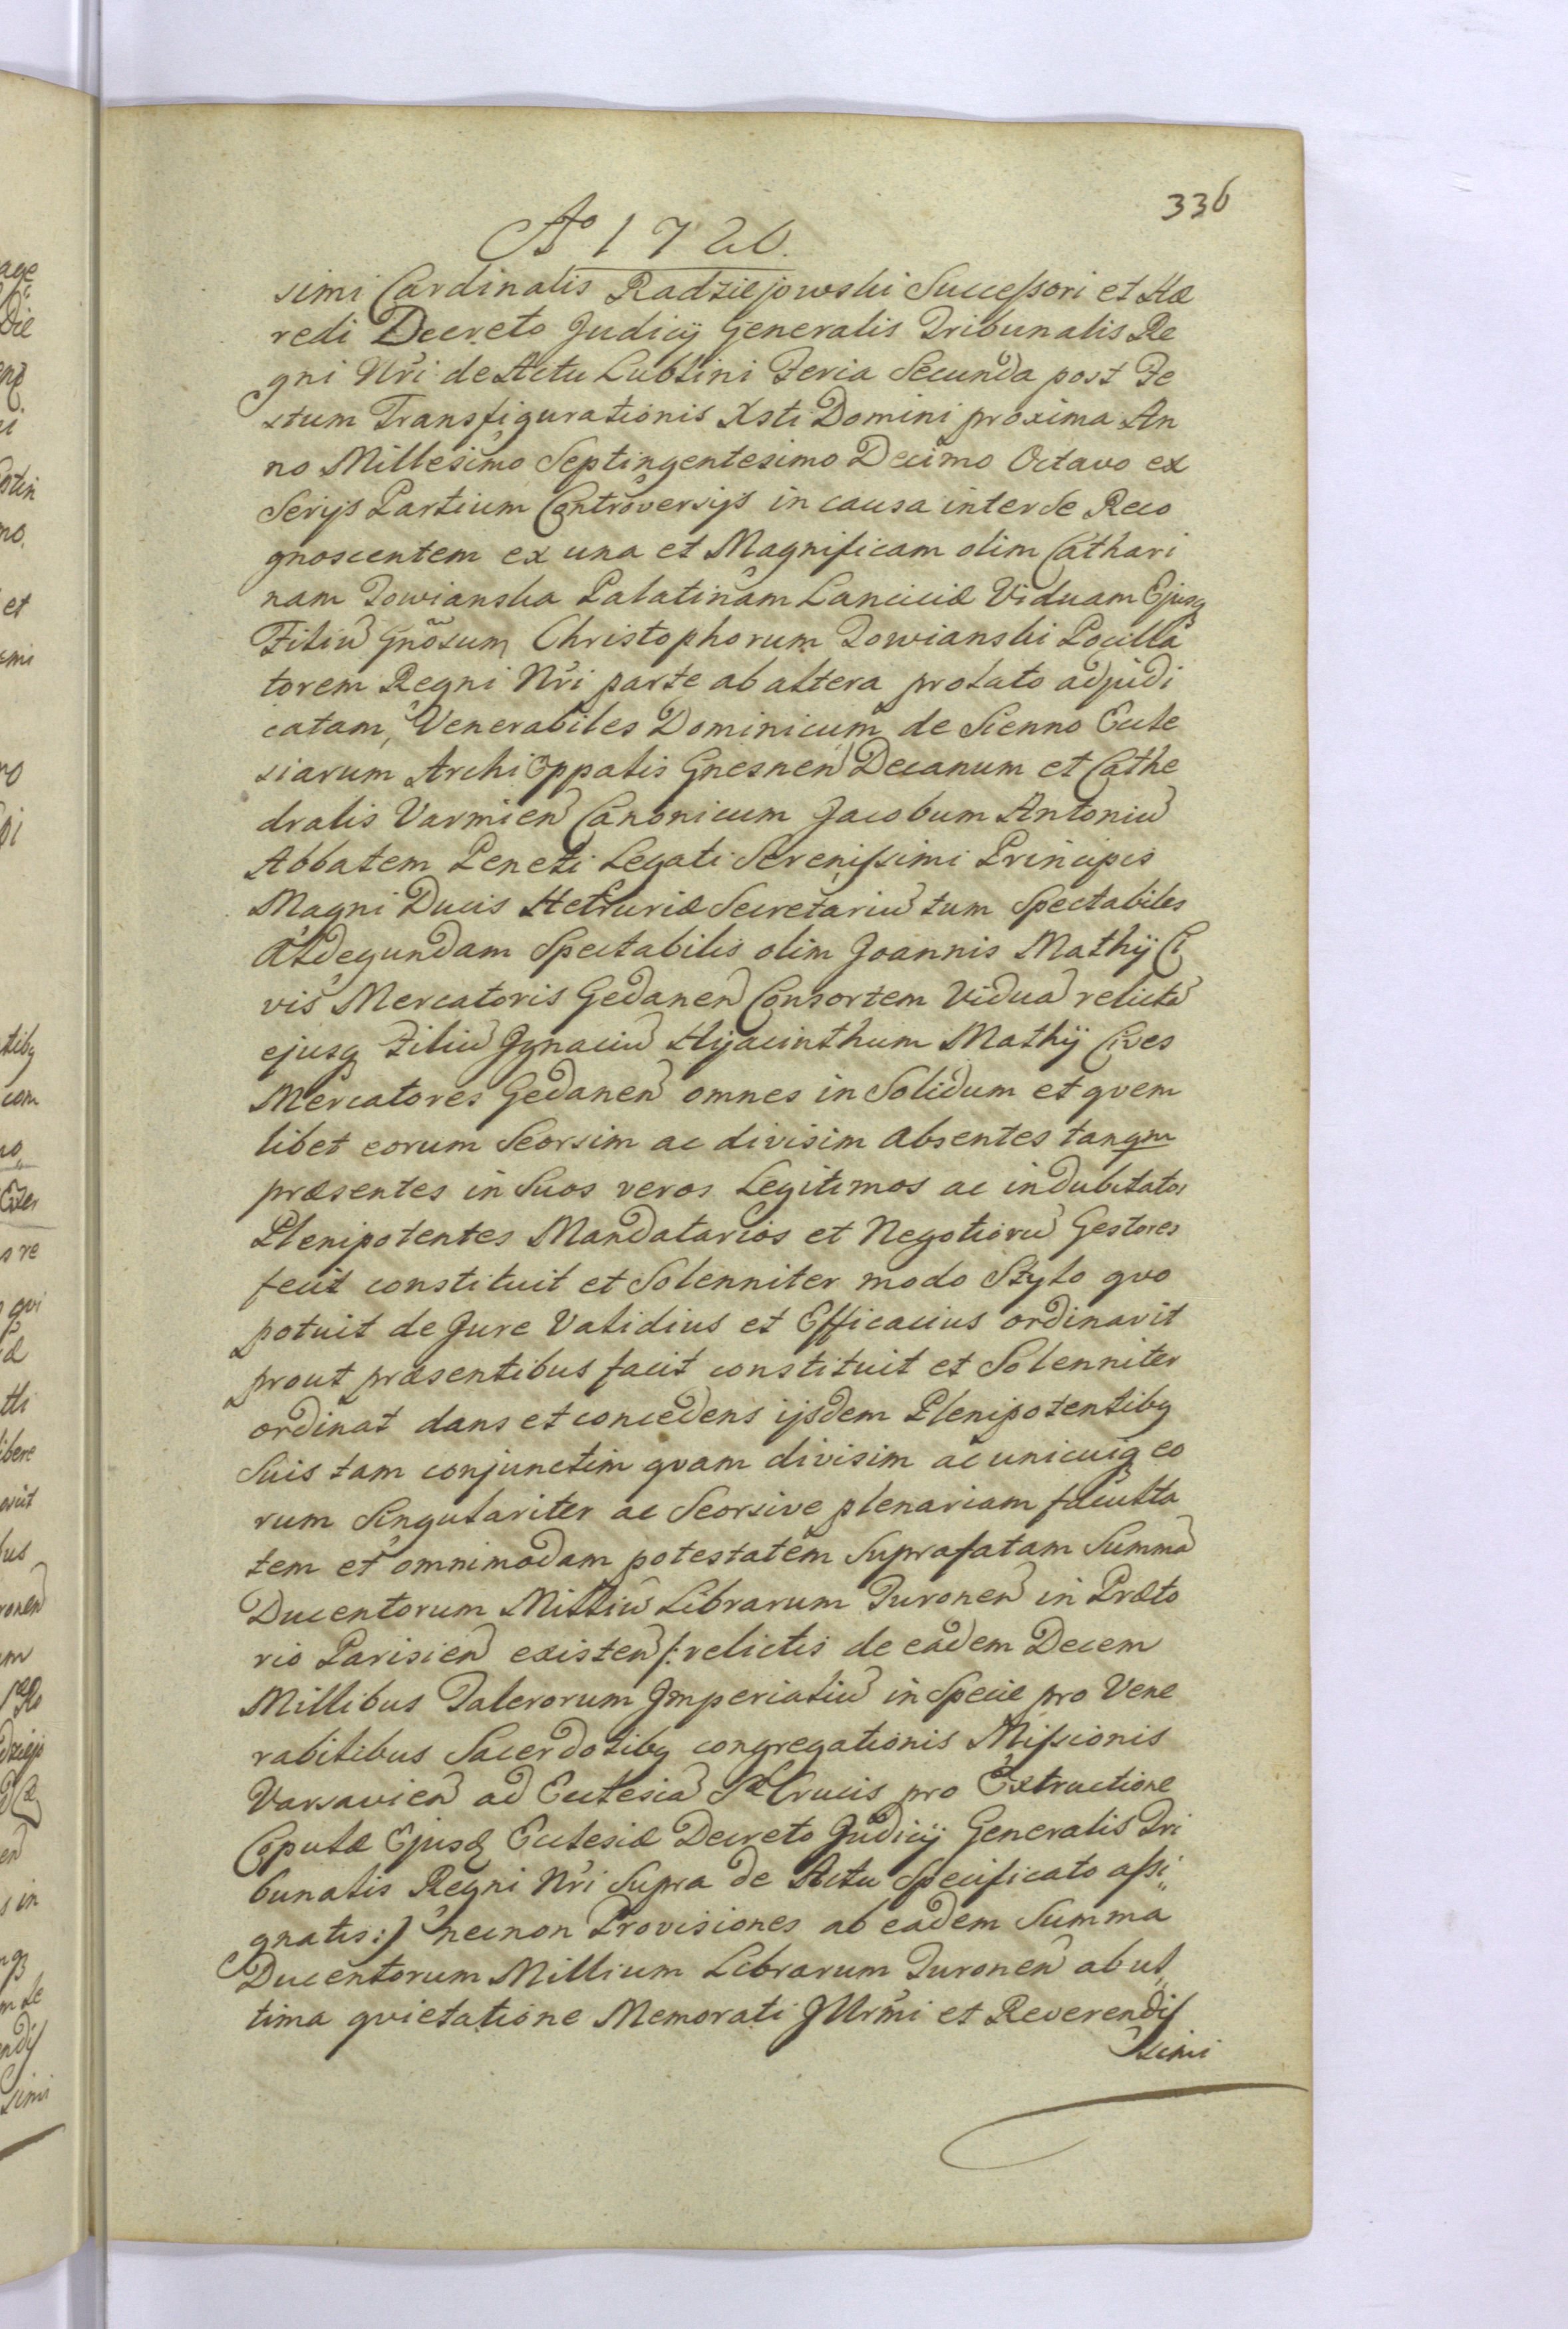 336
Ao 1726.
simi Cardinalis Radziejowski Successori et Hæ
redi Decreto Judicij Generalis Tribunalis Re
gni Nri de Actu Lublini Feria Secunda post Fe
stum Transfigurationis Xsti Domini proxima An
no Millesimo Septingentesimo Decimo Octavo ex
Serijs Partium Controversijs in causa inter se Reco
gnoscentem ex una et Magnificam olim Cathari
nam Towianska Palatinam Lanciciæ Viduam Ejusq
Filiu Gnosum Christophorum Towianski Pocilla
torem Regni Nri parte ab altera prolato adjudi
catam, Venerabiles Dominicum de Sienno Eccle
siarum Archi Eppalis Gnesnen Decanum et Cathe
dralis Varmien Canonicum Jacobum Antoniu
Abbatem Peneti Legati Serenissimi Principis
Magni Ducis Hetruriæ Secretariu tum Spectabiles
Aldegundam Spectabilis olim Joannis Mathÿ Ci
vis Mercatoris Gedanen Consortem Vidua relicta
ejusq Filiu Ignaciu Hyacinthum Mathÿ Cives
Mercatores Gedanen omnes in Solidum et qvem
libet eorum Seorsim ac divisim absentes tanqm
præsentes in Suos veros Legitimos ac indubitatos
Plenipotentes Mandatarios et Negotioru Gestores
fecit constituit et Solenniter modo Stylo qvo
potuit de Jure Validius et Efficacius ordinavit
prout præsentibus facit constituit et Solenniter
ordinat dans et concedens ijsdem Plenipotentibg
Suis tam conjunctim qvam divisim ac unicuiq eo
rum Singulariter ac Seorsive plenariam faculta
tem et omnimodam potestatem Suprafatam Summa
Ducentorum Milliu Librarum Turonen in Præto
rio Parisien existen /: relictis de eadem Decem
Millibus Talerorum Imperialiu in Specie pro Vene
rabilibus Sacerdotibg congregationis Missionis
Varsavien ad Ecclesia Sæ Crucis pro Extructione
Copulæ Ejusq Ecclesiæ Decreto Judicij Generalis Tri
bunalis Regni Nri Supra de Actu Specificato assi
gnatis :/ necnon Provisiones ab eadem Summa
Ducentorum Millium Librarum Turonen ab ul
tima qvietatione Memorati Jllrmi et Reverendis
simi